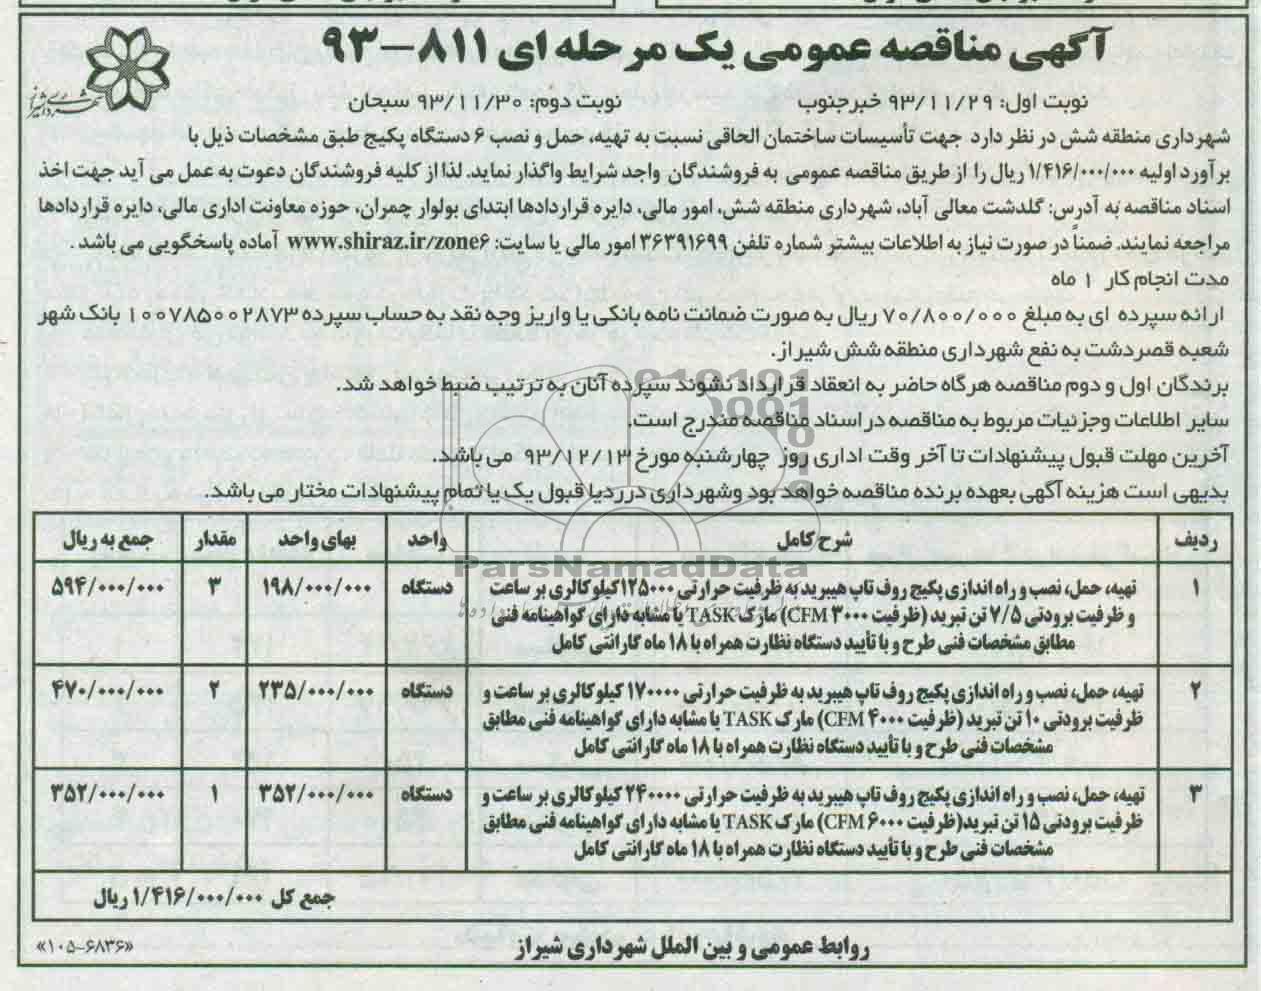 آگهی مناقصه عمومی یک مرحله ای ۸۱۱-۹۳
شهرداری شیراز
نوبت اول: ۹۳/۱۱/۲۹ خبرجنوب نوبت دوم: ۹۳/۱۱/۳۰ سبحان
شهرداری منطقه شش در نظر دارد جهت تأسیسات ساختمان الحاقی نسبت به تهیه، حمل و نصب ۶ دستگاه پکیج طبق مشخصات ذیل با
برآورد اولیه ۱/۴۱۶/۰۰۰/۰۰۰ ریال را از طریق مناقصه عمومی به فروشندگان واجد شرایط واگذار نماید. لذا از کلیه فروشندگان دعوت به عمل می آید جهت اخذ
اسناد مناقصه به آدرس: گلدشت معالی آباد، شهرداری منطقه شش، امور مالی، دایره قراردادها ابتدای بولوار چمران، حوزه معاونت اداری مالی، دایره قراردادها
مراجعه نمایند. ضمناً در صورت نیاز به اطلاعات بیشتر شماره تلفن ۳۶۳۹۱۶۹۹ امور مالی یا سایت: www.shiraz.ir/zone۶ آماده پاسخگویی می باشد.
مدت انجام کار ۱ ماه
ارائه سپرده ای به مبلغ ۷۰/۸۰۰/۰۰۰ ریال به صورت ضمانت نامه بانکی یا واریز وجه نقد به حساب سپرده ۱۰۰۷۸۵۰۰۲۸۷۳ بانک شهر
شعبه قصردشت به نفع شهرداری منطقه شش شیراز.
برندگان اول و دوم مناقصه هرگاه حاضر به انعقاد قرارداد نشوند سپرده آنان به ترتیب ضبط خواهد شد.
سایر اطلاعات وجزئیات مربوط به مناقصه در اسناد مناقصه مندرج است.
آخرین مهلت قبول پیشنهادات تا آخر وقت اداری روز چهارشنبه مورخ ۹۳/۱۲/۱۳ می باشد.
بدیهی است هزینه آگهی بعهده برنده مناقصه خواهد بود وشهرداری در ردیا قبول یک یا تمام پیشنهادات مختار می باشد.
ردیف شرح کامل واحد بهای واحد مقدار جمع به ریال
۱ تهیه، حمل، نصب و راه اندازی پکیج روف تاپ هیبرید به ظرفیت حرارتی ۱۲۵۰۰۰کیلو کالری بر ساعت دستگاه ۱۹۸/۰۰۰/۰۰۰ ۳ ۵۹۴/۰۰۰/۰۰۰
و ظرفیت برودتی ۷/۵ تن تبرید (ظرفیت ۳۰۰۰ CFM) مارک TASK یا مشابه دارای گواهینامه فنی
مطابق مشخصات فنی طرح و با تأیید دستگاه نظارت همراه با ۱۸ ماه گارانتی کامل
۲ تهیه، حمل، نصب و راه اندازی پکیج روف تاپ هیبرید به ظرفیت حرارتی ۱۷۰۰۰۰ کیلو کالری بر ساعت و دستگاه ۲۳۵/۰۰۰/۰۰۰ ۲ ۴۷۰/۰۰۰/۰۰۰
ظرفیت برودتی ۱۰ تن تبرید (ظرفیت ۴۰۰۰ CFM) مارک TASK یا مشابه دارای گواهینامه فنی مطابق
مشخصات فنی طرح و با تأیید دستگاه نظارت همراه با ۱۸ ماه گارانتی کامل
۳ تهیه، حمل، نصب و راه اندازی پکیج روف تاپ هیبرید به ظرفیت حرارتی ۲۴۰۰۰۰ کیلو کالری بر ساعت و دستگاه ۳۵۲/۰۰۰/۰۰۰ ۱ ۳۵۲/۰۰۰/۰۰۰
ظرفیت برودتی ۱۵ تن تبرید(ظرفیت ۶۰۰۰ CFM) مارک TASK یا مشابه دارای گواهینامه فنی مطابق
مشخصات فنی طرح و با تأیید دستگاه نظارت همراه با ۱۸ ماه گارانتی کامل
جمع کل ۱/۴۱۶/۰۰۰/۰۰۰ ریال
روابط عمومی و بین الملل شهرداری شیراز
«۱۰۵-۶۸۳۶»
ParsNamadData